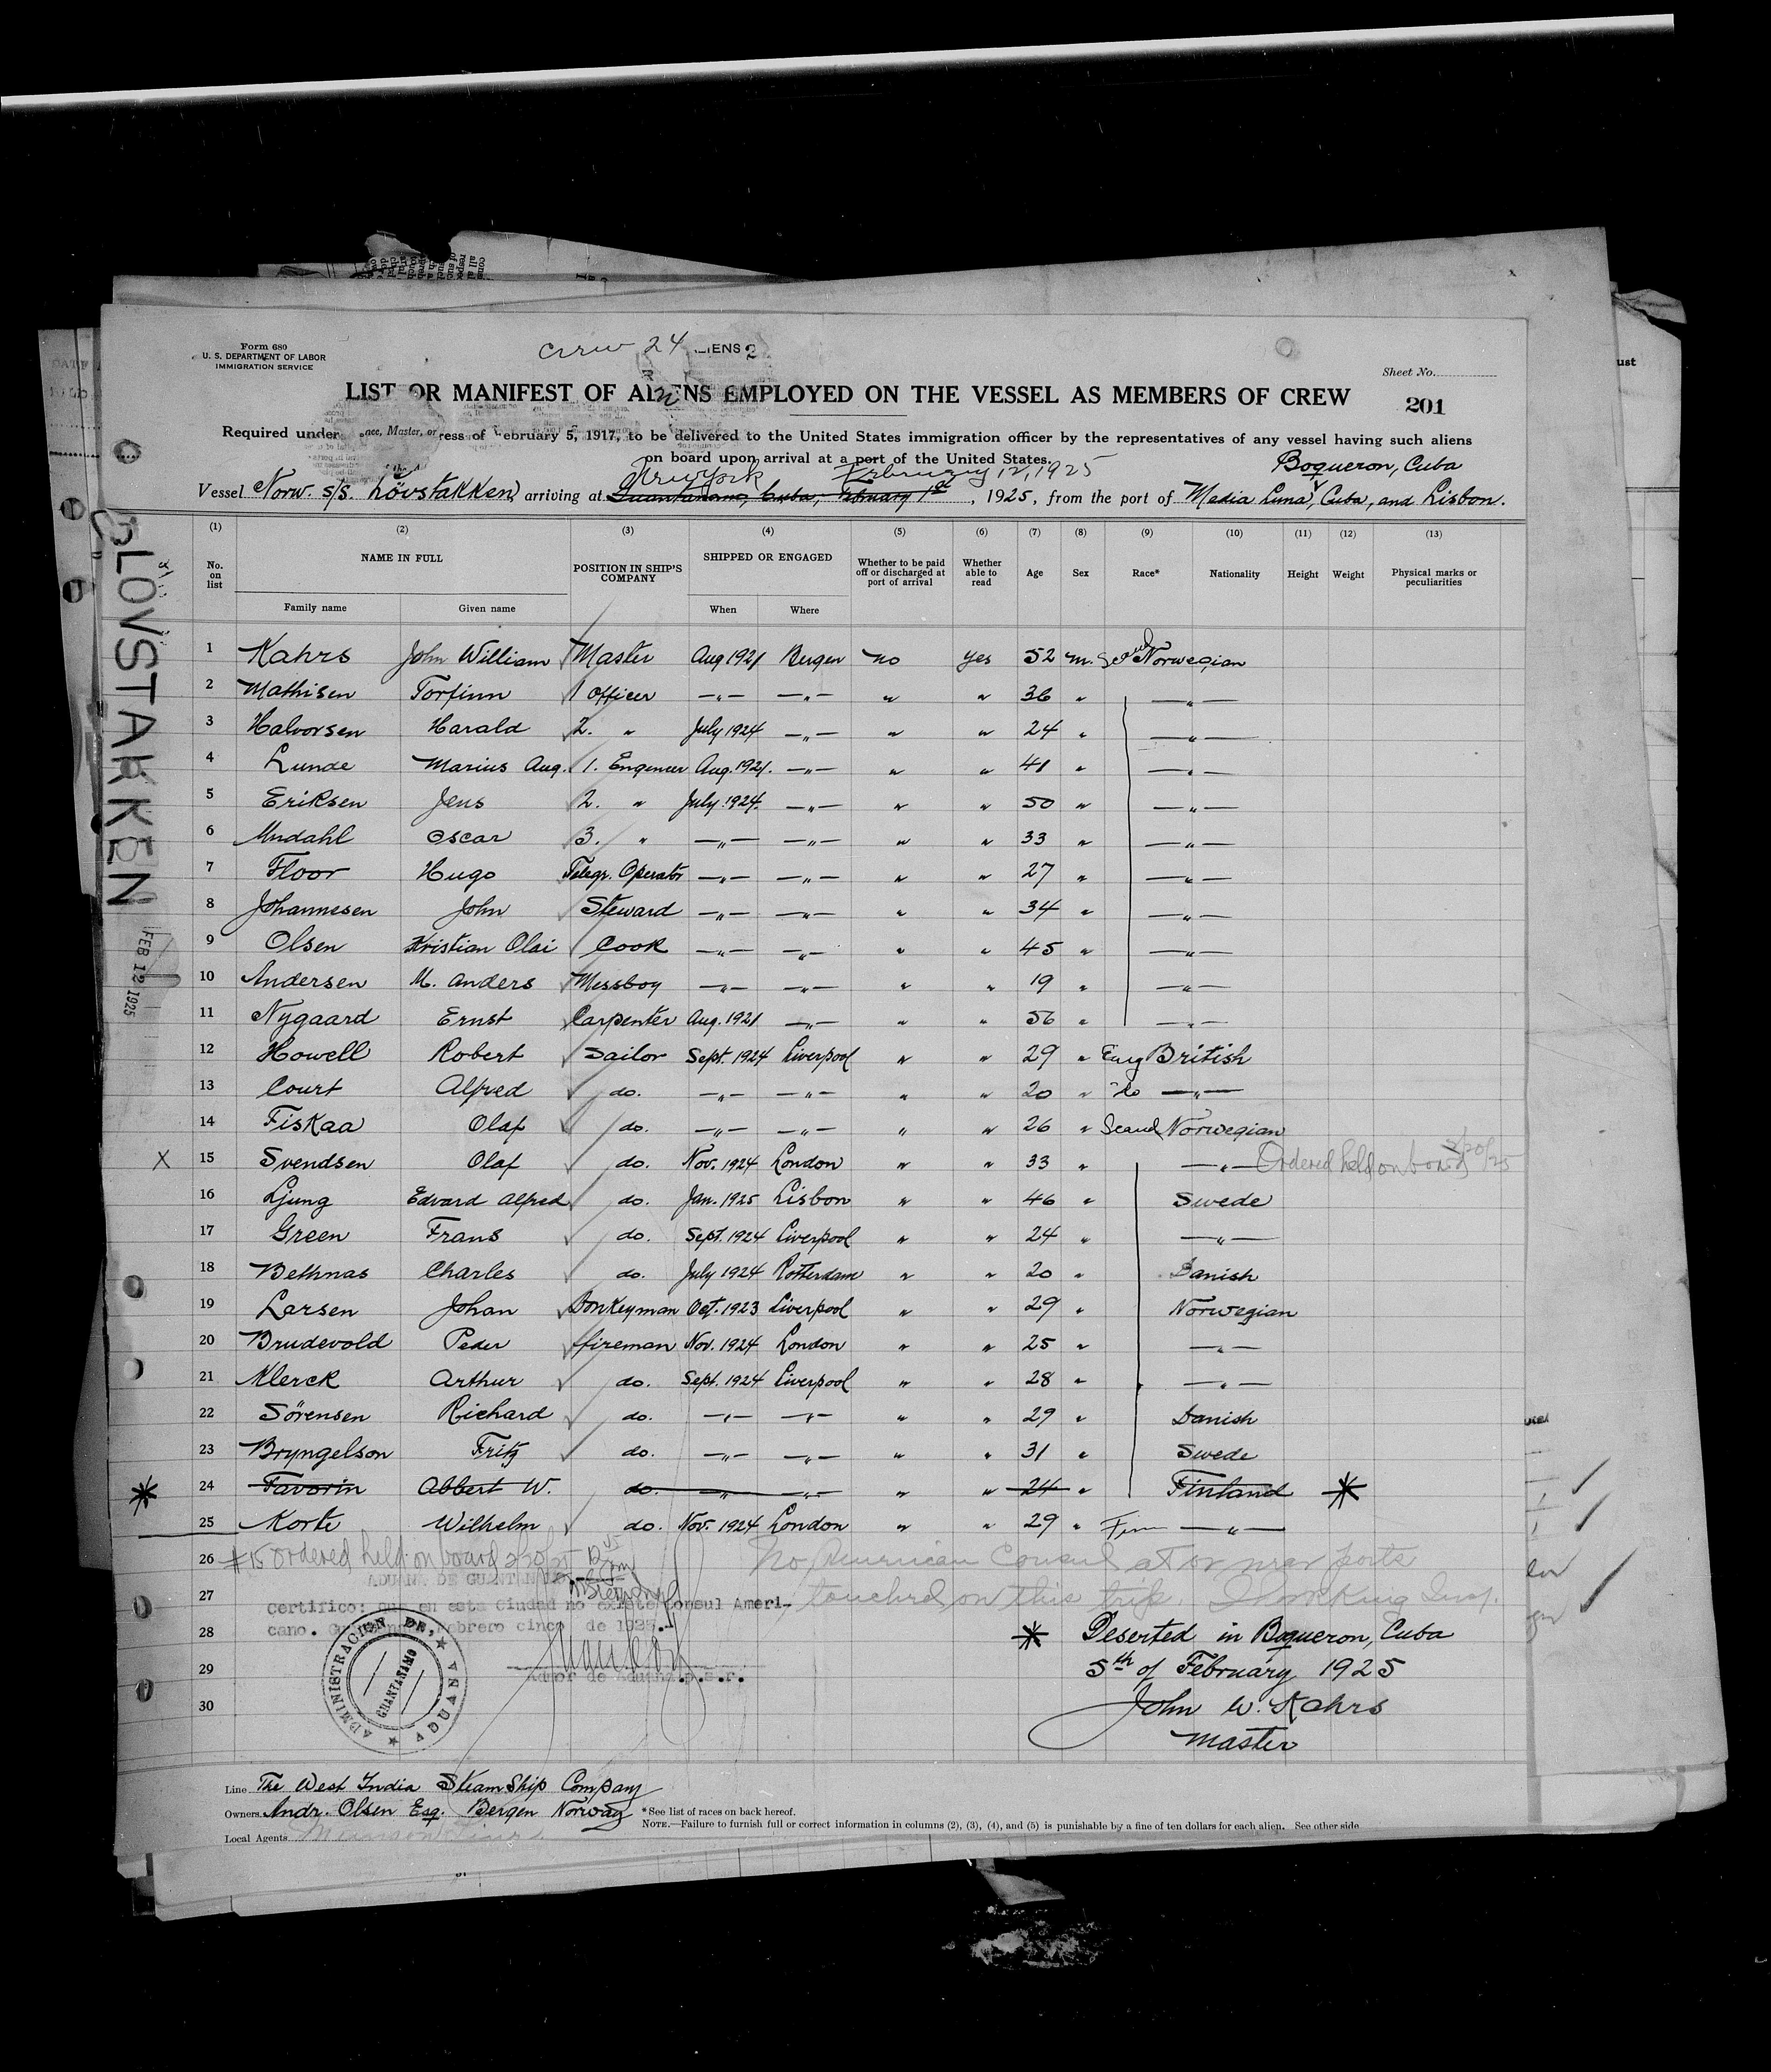 Form 680
U. S. DEPARTMENT OF LABOR
IMMIGRATION SERVICE
Crew 24
LIENS 2
Sheet No.
LIST OR MANIFEST OF ALIENS EMPLOYED ON THE VESSEL AS MEMBERS OF CREW
201
Required under ress of February 5, 1917, to be delivered to the United States immigration officer by the representatives of any vessel having such aliens
on board upon arrival at a port of the United States.
New York February 12, 1925 Boqueron, Cuba
Vessel Norw. s/s. Lövstakken, arriving at Guantanamo, Cuba, February 1st, 1925, from the port of Media Luna, Cuba, and Lisbon.
(1) (2) (3) (4) (5) (6) (7) (8) (9) (10) (11) (12) (13)
No. on list NAME IN FULL POSITION IN SHIP'S COMPANY SHIPPED OR ENGAGED Whether to be paid off or discharged at port of arrival Whether able to read Age Sex Race* Nationality Height Weight Physical marks or peculiarities
Family name Given name When Where
1 Kahrs John William Master Aug 1921 Bergen no yes 52 m. Scand Norwegian
2 Mathisen Torfinn 1 officer —„— —„— „ „ 36 „ —„—
3 Halvorsen Harald 2. „ July 1924 —„— „ „ 24 „ —„—
4 Lunde Marius Aug. 1. Engeneer Aug. 1921. —„— „ „ 41 „ —„—
5 Eriksen Jens 2. „ July 1924. —„— „ „ 50 „ —„—
6 Mndahl Oscar 3. „ —„— —„— „ „ 33 „ —„—
7 Floor Hugo Telegr. Operator —„— —„— „ „ 27 „ —„—
8 Johannesen John Steward —„— —„— „ „ 34 „ —„—
9 Olsen Kristian Olai Cook —„— —„— „ „ 45 „ —„—
10 Andersen M. Anders Messboy —„— —„— „ „ 19 „ —„—
11 Nygaard Ernst Carpenter Aug. 1921 —„— „ „ 56 „ —„—
12 Howell Robert Sailor Sept. 1924 Liverpool „ „ 29 „ Eng British
13 Court Alfred do. —„— —„— „ „ 20 „ do —„—
14 Fiskaa Olaf do. —„— —„— „ „ 26 „ Scand Norwegian
X 15 Svendsen Olaf do. Nov. 1924 London „ „ 33 „ —„— Ordered held on board 2/20/25
16 Ljung Edvard Alfred do. Jan. 1925 Lisbon „ „ 46 „ Swede
17 Green Frans do. Sept. 1924 Liverpool „ „ 24 „ —„—
18 Bethnas Charles do. July 1924 Rotterdam „ „ 20 „ Danish
19 Larsen Johan Donkeyman Oct. 1923 Liverpool „ „ 29 „ Norwegian
20 Brudevold Peder fireman Nov. 1924 London „ „ 25 „ —„—
21 Klerck Arthur do. Sept. 1924 Liverpool „ „ 28 „ —„—
22 Sörensen Richard do. —„— —„— „ „ 29 „ Danish
23 Bryngelson Fritz do. —„— —„— „ „ 31 „ Swede
* 24 Favorin Abbert W. do. —„— —„— „ „ 24 „ Finland *
25 Korte Wilhelm do. Nov. 1924 London „ „ 29 „ Finn —„—
26 #15 ordered held on board 2/20/25
No American Consul at or near ports
ADUANA DE GUANTANAMO
27 touched on this trip.
Certifico: que en esta Ciudad no existe Consul Ameri-
cano. Guantanamo, Febrero cinco de 1925.
28 * Deserted in Boqueron, Cuba
29 5th of February 1925
Admor de Aduana p.s.r.
30 John W. Kahrs
Master
ADMINISTRACION DE ADUANA
GUANTANAMO
Line The West India SteamShip Company
Owners Andr. Olsen Esq. Bergen Norway
*See list of races on back hereof.
NOTE.—Failure to furnish full or correct information in columns (2), (3), (4), and (5) is punishable by a fine of ten dollars for each alien. See other side
Local Agents
LOVSTAKKEN
FEB 12 1925